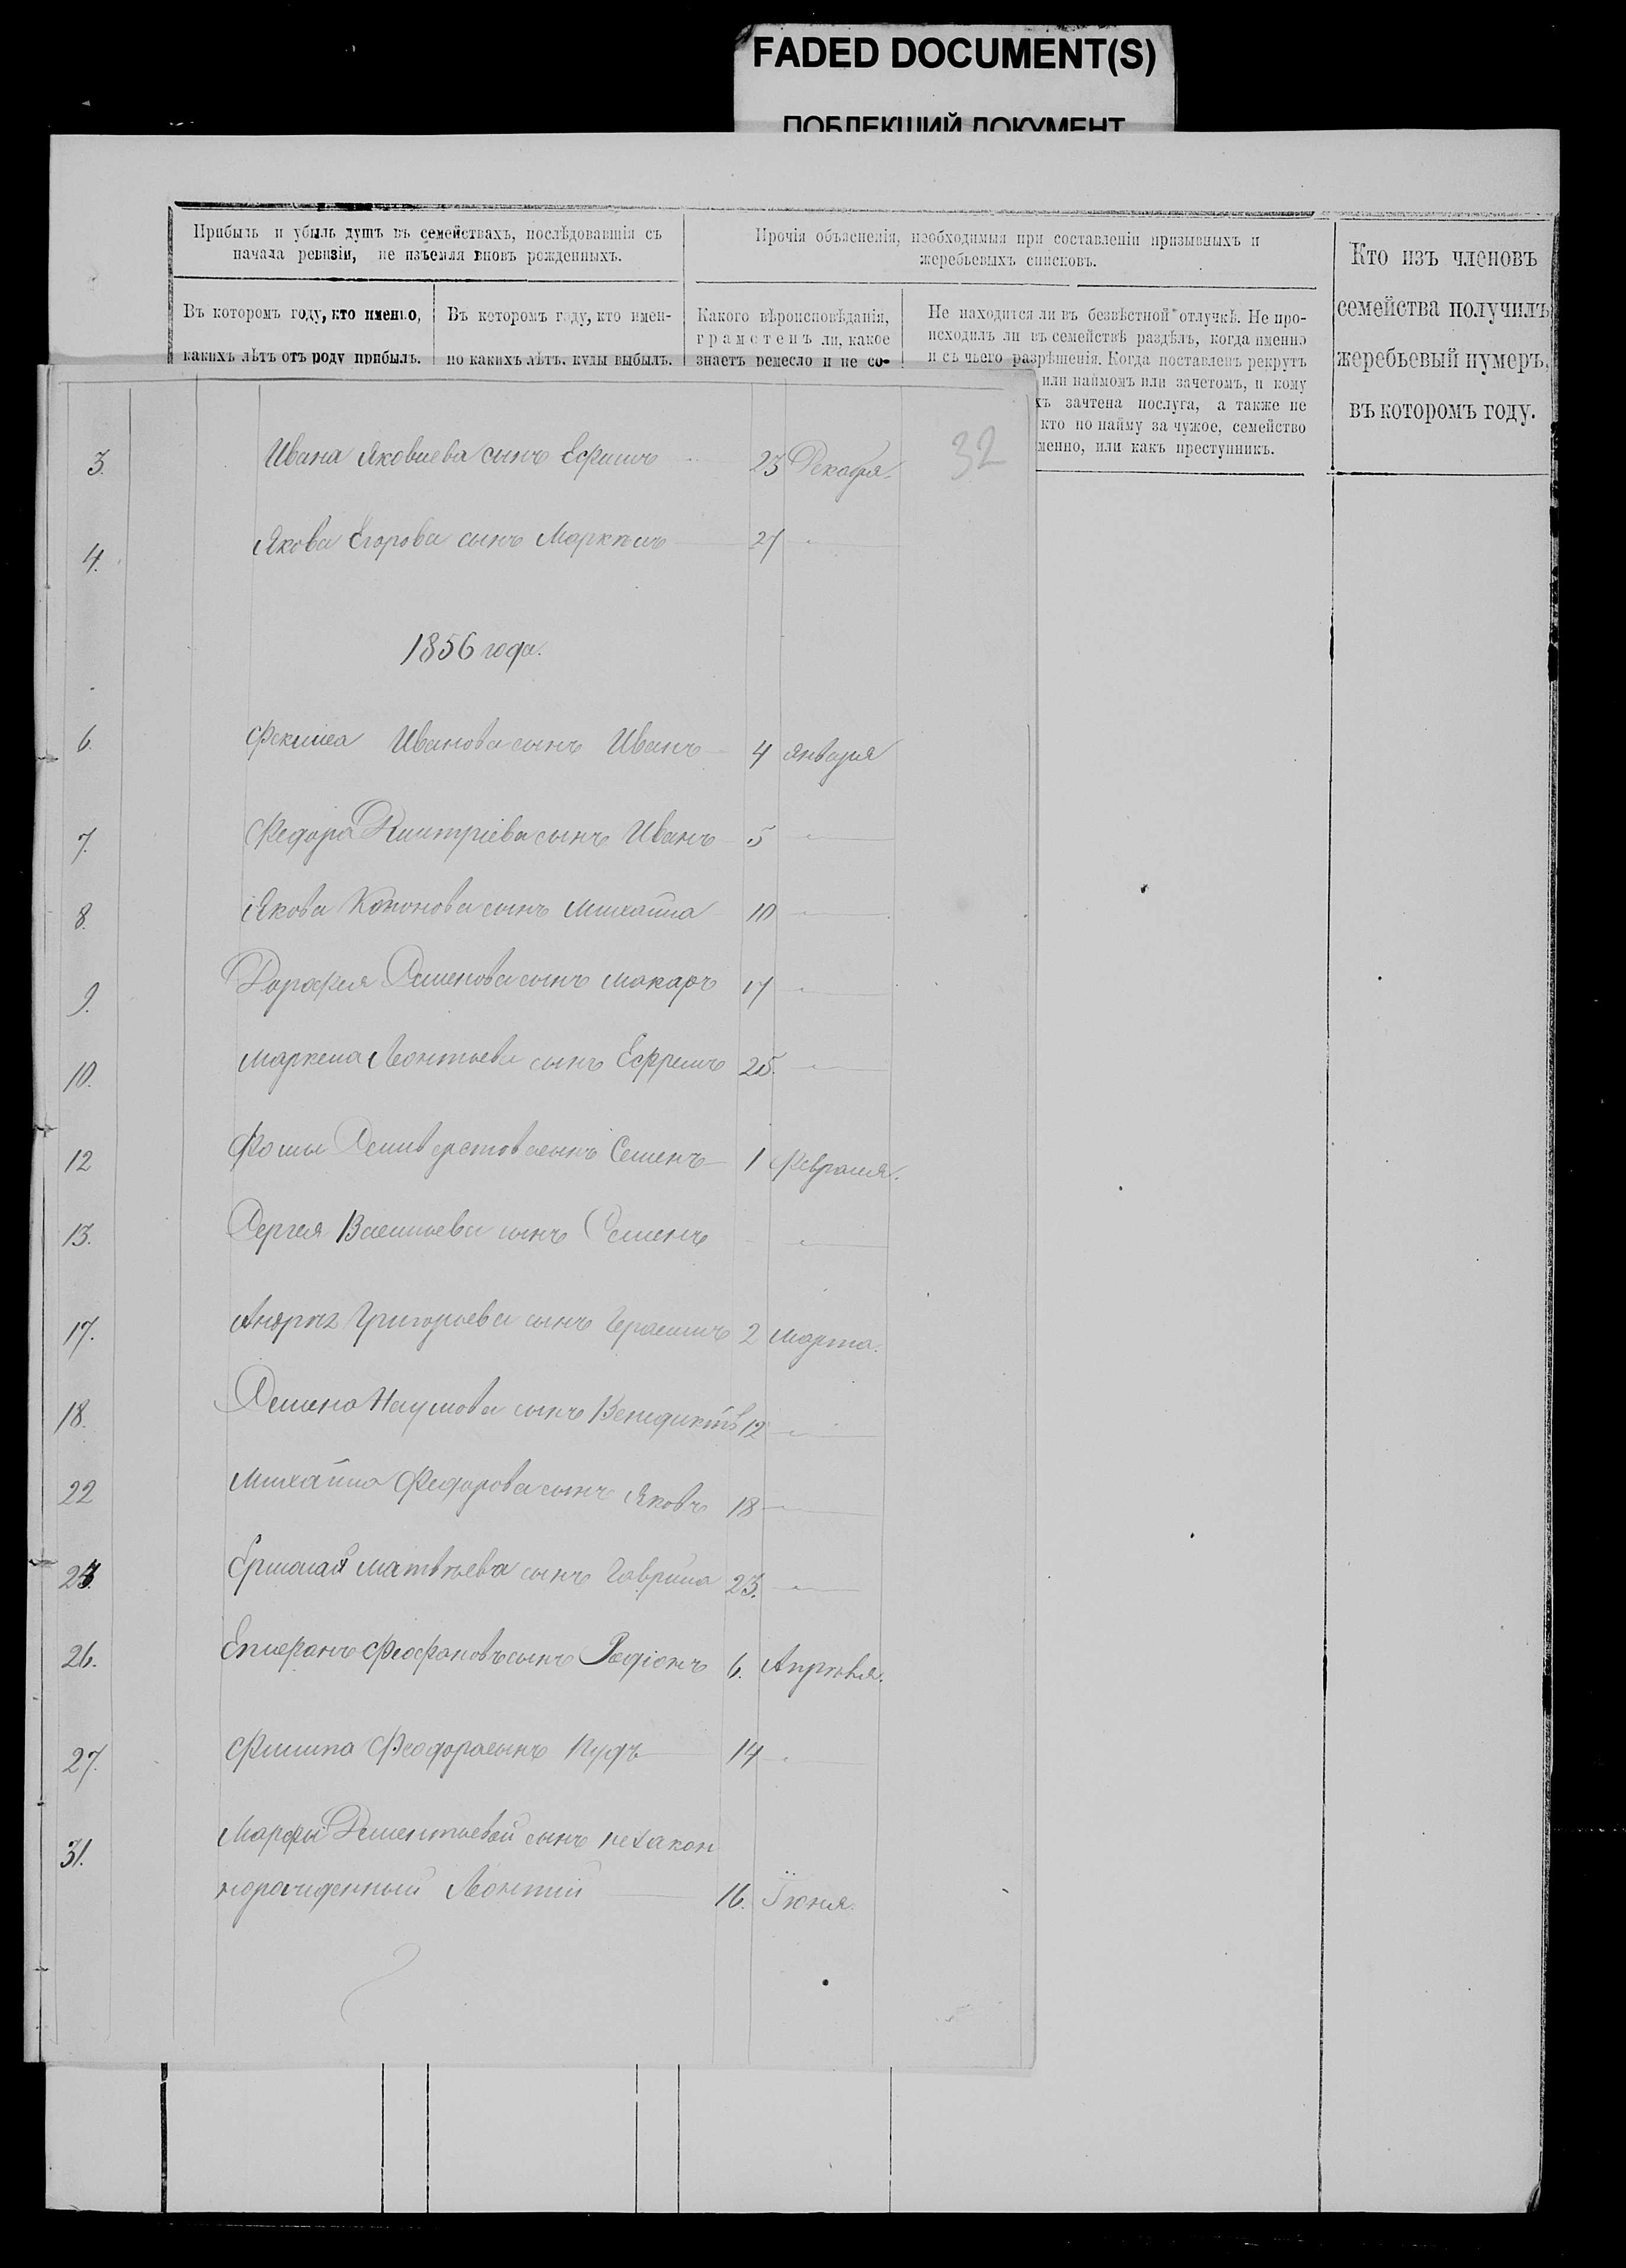 FADED DOCUMENT(S)
ПОБЛЕКШИЙ ДОКУМЕНТ
Прибыль и убыль душъ въ семействахъ, послѣдовавшія съ
начала ревизіи, не изъемля вновь рожденныхъ.
Прочія объясненія, необходимыя при составленіи призывныхъ и
жеребьевыхъ списковъ.
Кто изъ членовъ
семейства получилъ
жеребьевый нумеръ,
въ которомъ году.
Въ которомъ году, кто именно,
какихъ лѣтъ отъ роду прибылъ.
Въ которомъ году, кто имен-
но какихъ лѣтъ, куды выбылъ.
Какого вѣроисповѣданія,
грамотенъ ли, какое
знаетъ ремесло и не со-
Не находится ли въ безвѣстной отлучкѣ. Не про-
исходилъ ли въ семействѣ раздѣлъ, когда именно
и съ чьего разрѣшенія. Когда поставленъ рекрутъ
или наймомъ или зачетомъ, и кому
хъ зачтена послуга, а также не
кто по найму за чужое, семейство
менно, или какъ преступникъ.
32
3. Ивана Яковлева сынъ Ефимъ 23 Декабря.
4. Якова Егорова сынъ Маркелъ 27 "
1856 года.
6. Фекила Иванова сынъ Иванъ 4 Января
7. Федора Дмитріева сынъ Иванъ 5 "
8. Якова Кононова сынъ Михайла 10 "
9. Дорофея Семенова сынъ Макаръ 17 "
10. Маркела Леонтьева сынъ Ефремъ 25. "
12 Фомы Селиверстова сынъ Семенъ 1 Февраля.
13. Сергея Васильева сынъ Семенъ "
17. Андрея Григорьева сынъ Герасимъ 2 Марта.
18. Семена Наумова сынъ Венедиктъ 12 "
22 Михайла Федорова сынъ Яковъ 18 "
23. Ермолая Матвѣева сынъ Гаврила 23. "
26. Феофановъ сынъ Родіонъ 6. Апрѣля.
27. Филипа Феодора сынъ Пудъ 14 "
31. Марфы Дементьевой сынъ незакон
норожденный Леонтий 16. Іюня.